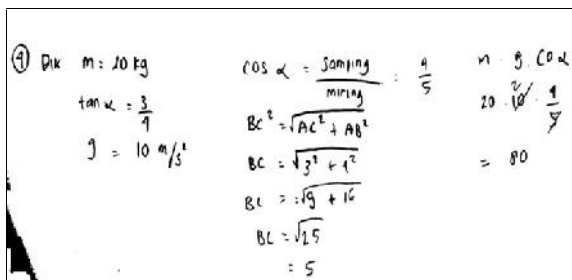 ④ Dik m = 20 kg
tan α = 3/4
g = 10 m/s²
cos α = samping/miring = 4/5
BC² = √AC² + AB²
BC = √3² + 4²
BC = √9 + 16
BC = √25
= 5
m . g . Cos α
20 . 10 2 . 4/5
= 80